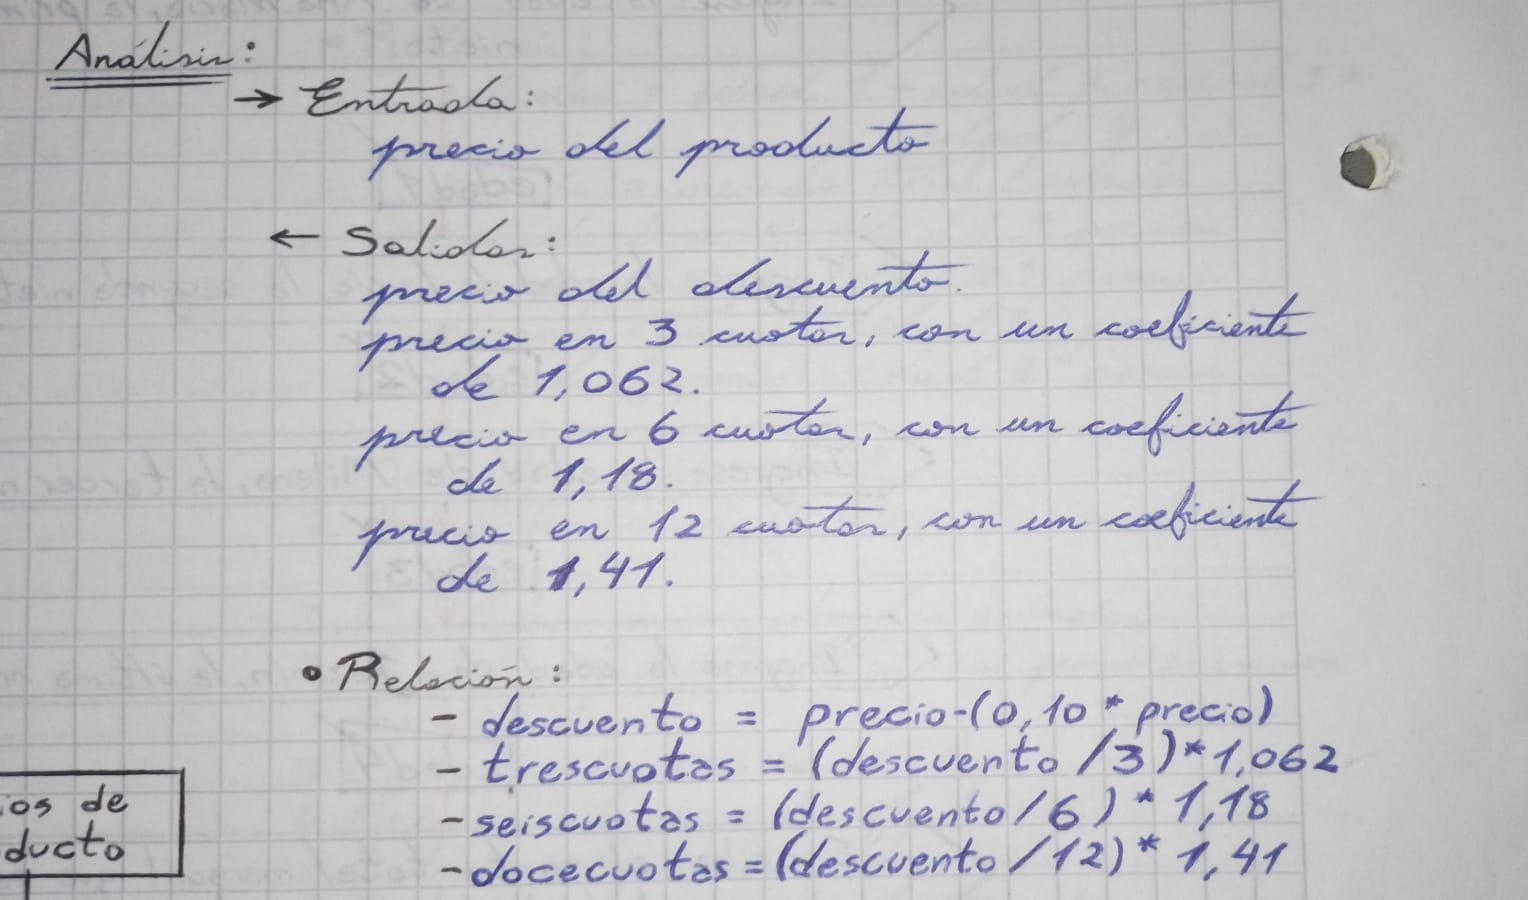 Análisis:
→ Entrada:
precio del producto
← Salidas:
precio del descuento.
precio en 3 cuotas, con un coeficiente
de 1,062.
precio en 6 cuotas, con un coeficiente
de 1,18.
precio en 12 cuotas, con un coeficiente
de 1,41.
• Relación:
- descuento = precio-(0,10 * precio)
- trescuotas = (descuento /3)*1,062
- seiscuotas = (descuento/6) * 1,18
- docecuotas = (descuento /12) * 1,41
ios de
ducto